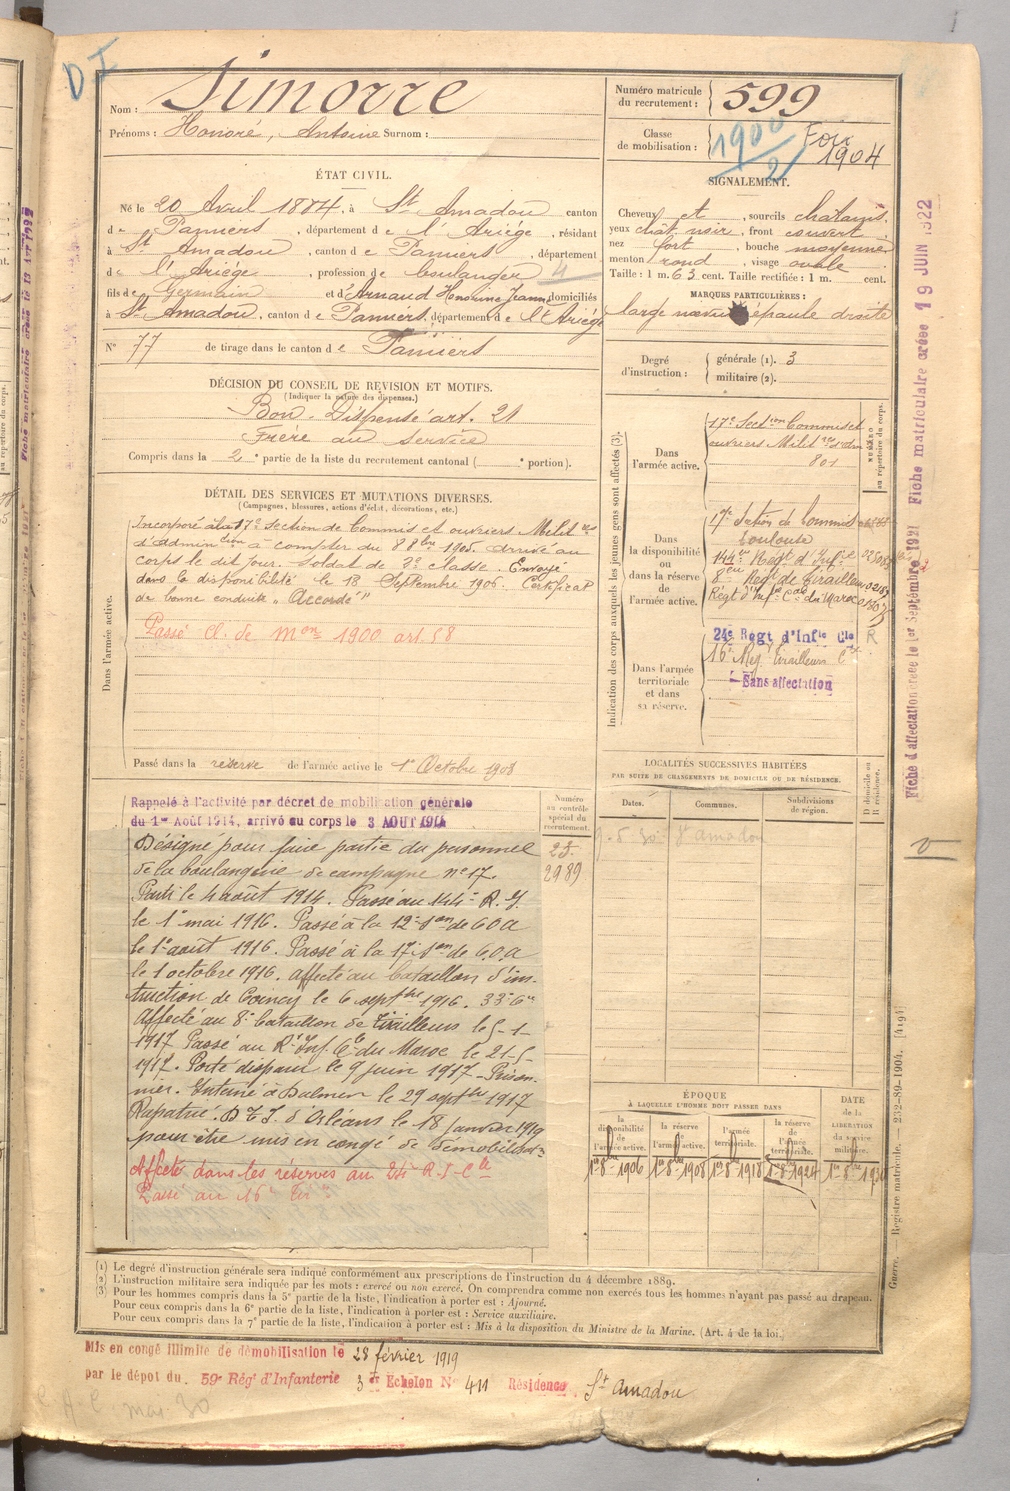 D I
Nom : Simorre
Prénoms : Honoré, Antoine Surnom :
Numéro matricule du recrutement : 599
Classe de mobilisation : 1900/2 Foix 1904
ÉTAT CIVIL.
Né le 20 Avril 1884, à St Amadou canton
de Pamiers, département de l'Ariége, résidant
à St Amadou, canton de Pamiers, département
de l'Ariége, profession de boulanger 4
fils de Germain et d'Arnaud Honorine Jeanne domiciliés
à St Amadou, canton de Pamiers, département de l'Ariége
N° 77 de tirage dans le canton de Pamiers
SIGNALEMENT.
Cheveux et, sourcils chatains.
yeux chat. noir, front couvert
nez fort, bouche moyenne
menton rond, visage ovale
Taille : 1 m. 63 cent. Taille rectifiée : 1 m. cent.
MARQUES PARTICULIÈRES :
large nævus épaule droite
Degré d'instruction : générale (1). 3
militaire (2).
DÉCISION DU CONSEIL DE REVISION ET MOTIFS.
(Indiquer la nature des dispenses.)
Bon - Dispensé art. 21
Frère au service
Compris dans la 2e partie de la liste du recrutement cantonal ( e portion).
DÉTAIL DES SERVICES ET MUTATIONS DIVERSES.
(Campagnes, blessures, actions d'éclat, décorations, etc.)
Dans l'armée active.
Incorporé à la 17e section de Commis et ouvriers Milit res
d'Admin tion à compter du 8 8bre 1905. Arrivé au
corps le dit jour. Soldat de 2e classe. Envoyé
dans la disponibilité le 18 Septembre 1906. Certificat
de bonne conduite "Accordé"
Passé Cl. de Mon 1900 art. 58
Passé dans la réserve de l'armée active le 1er Octobre 1908
Indication des corps auxquels les jeunes gens sont affectés (3).
NUMÉRO au répertoire du corps.
Dans l'armée active.
17e Section Commis et
ouvriers Milit res d'adm
801
Dans la disponibilité ou dans la réserve de l'armée active.
17e Section de Commis
Toulouse
144e Régt d'Infie
8eme Régt de Tirailleurs
Régt d'Infie Cale du Maroc
Dans l'armée territoriale et dans sa réserve.
24e Régt d'Infie Cle R
16e Reg. Tirailleurs
Sans affectation
LOCALITÉS SUCCESSIVES HABITÉES
PAR SUITE DE CHANGEMENTS DE DOMICILE OU DE RÉSIDENCE.
Dates. Communes. Subdivisions de région. D domicile ou R résidence.
9. 5. 30. St Amadou
Rappelé à l'activité par décret de mobilisation générale
du 1er Août 1914, arrivé au corps le 3 AOUT 1914
Numéro au contrôle spécial du recrutement.
23-
2989
Désigné pour faire partie du personnel
de la boulangerie de campagne n° 17.
Parti le 4 août 1914. Passé au 144e R. I.
le 1er mai 1916. Passé à la 12e Son de C.O.A
le 1er août 1916. Passé à la 17e Son de C.O.A
le 1 octobre 1916. affecté au bataillon d'ins-
truction de Coincy le 6 septbre 1916. 33e Cie
Affecté au 8e bataillon de tirailleurs le 5-1-
1917 Passé au Rt Inf. Cle du Maroc le 21-5-
1917. Porté disparu le 9 juin 1917 - Prison-
nier. Interné à Dulmen le 29 septbre 1917
Rapatrié. D.T.I. d'Orléans le 18 janvier 1919
pour être mis en congé de démobilison
Affecté dans les réserves au 24e R.I.Cle
Passé au 16e Tir
ÉPOQUE
À LAQUELLE L'HOMME DOIT PASSER DANS
la disponibilité de l'armée active.
la réserve de l'armée active.
l'armée territoriale.
la réserve de l'armée territoriale.
DATE de la LIBÉRATION du service militaire.
1er 8bre 1906 1er 8bre 1908 1er 8bre 1918 1er 8bre 1924 1er 8bre 1930
(1) Le degré d'instruction générale sera indiqué conformément aux prescriptions de l'instruction du 4 décembre 1889.
(2) L'instruction militaire sera indiquée par les mots : exercé ou non exercé. On comprendra comme non exercés tous les hommes n'ayant pas passé au drapeau.
(3) Pour les hommes compris dans la 5e partie de la liste, l'indication à porter est : Ajourné.
Pour ceux compris dans la 6e partie de la liste, l'indication à porter est : Service auxiliaire.
Pour ceux compris dans la 7e partie de la liste, l'indication à porter est : Mis à la disposition du Ministre de la Marine. (Art. 4 de la loi.)
Mis en congé illimité de démobilisation le 28 février 1919
par le dépot du 59e Rég' d'Infanterie 3e Echelon N° 411 Résidence St Amadou
mai 30
Fiche d'affectation créée le 1er Septembre 1921 Fiche matriculaire créée 19 JUIN 1922
Guerre. Registre matricule. 232-89-1904. [4194]